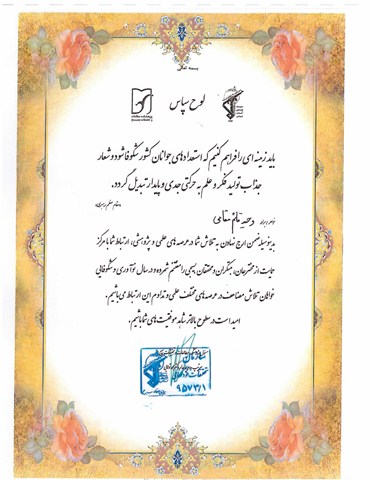 بسمه تعالی
لوح سپاس
باید زمینه ای را فراهم کنیم که استعدادهای جوانان کشور شکوفا شود و شعار
جذاب تولید فکر و علم به حرکتی جدی و پایدار تبدیل گردد.
(مقام معظم رهبری)
خواهر / برادر
بدینوسیله ضمن ارج نهادن به تلاش شما در عرصه های علمی و پژوهشی، ارتباط شما با مرکز
حمایت از مخترعان، مبتکران و محققان بسیجی را مغتنم شمرده و در سال نوآوری و شکوفایی
خواهان تلاش مضاعف در عرصه های مختلف علمی و تداوم این ارتباط می باشیم.
امید است در سطوح بالاتر شاهد موفقیت های شما باشیم.